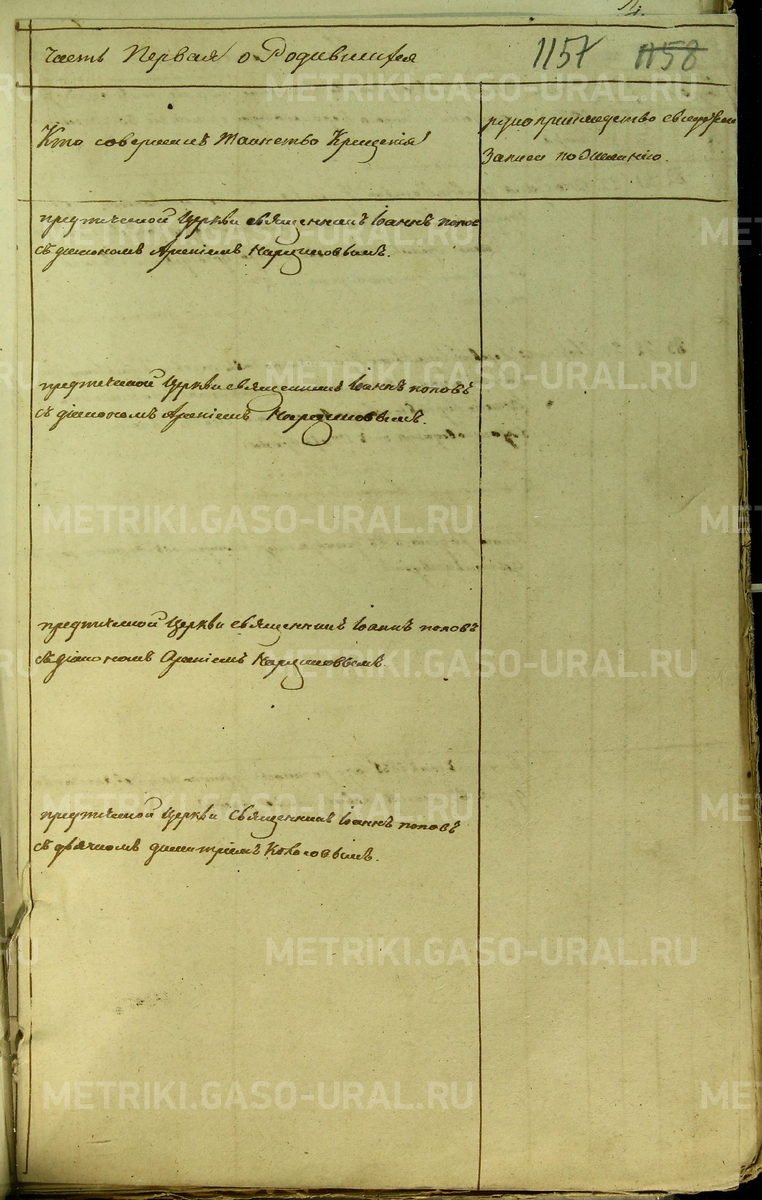 Часть Первая о Родившихся
1157 1158
Кто совершилъ Таинство Крещенія
рукоприкладство свидѣтелей
Записи по желанію.
предтечевой Церкви священникъ Іоаннъ попов
съ діакономъ Арсеніемъ
предтечевой Церкви священникъ Іоаннъ поповъ
съ діакономъ Арсеніемъ
предтечевой Церкви священникъ Іоаннъ поповъ
съ діакономъ Арсеніемъ
предтечевой Церкви священникъ Іоаннъ поповъ
съ дьячкомъ димитріемъ Колосовымъ.
METRIKI.GASO-URAL.RU